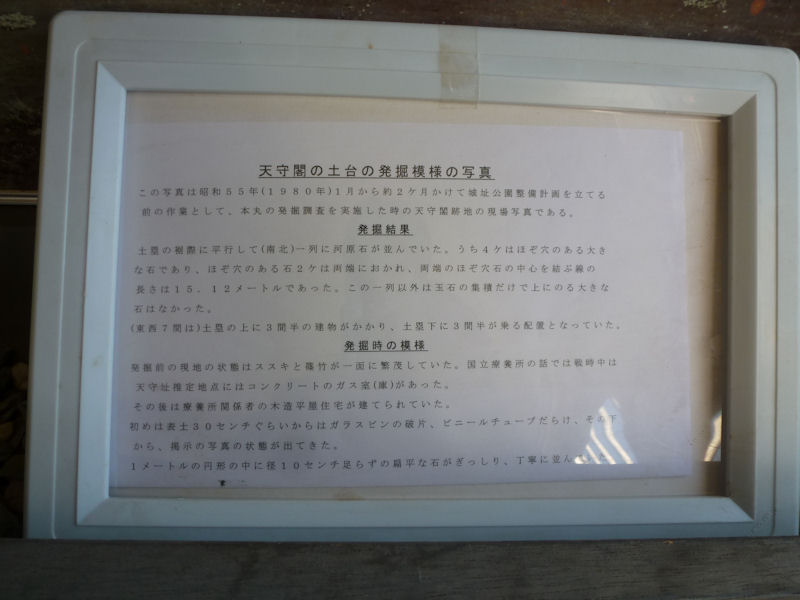 天守閣の土台の発掘模様の写真
この写真は昭和55年(1980年)1月から約2ケ月かけて城址公園整備計画を立てる
前の作業として、本丸の発掘調査を実施した時の天守閣跡地の現場写真である。
発掘結果
土塁の裾際に平行して(南北)一列に河原石が並んでいた。うち4ケはほぞ穴のある大き
な石であり、ほぞ穴のある石2ケは両端におかれ、両端のほぞ穴石の中心を結ぶ線の
長さは15.12メートルであった。この一列以外は玉石の集積だけで上にのる大きな
石はなかった。
(東西7間は)土塁の上に3間半の建物がかかり、土塁下に3間半が乗る配置となっていた。
発掘時の模様
発掘前の現地の状態はススキと篠竹が一面に繁茂していた。国立療養所の話では戦時中は
天守址推定地点にはコンクリートのガス室(庫)があった。
その後は療養所関係者の木造平屋住宅が建てられていた。
初めは表土30センチぐらいからはガラスビンの破片、ビニールチューブだらけ、その下
から、掲示の写真の状態が出てきた。
1メートルの円形の中に径10センチ足らずの扁平な石がぎっしり、丁寧に並んで